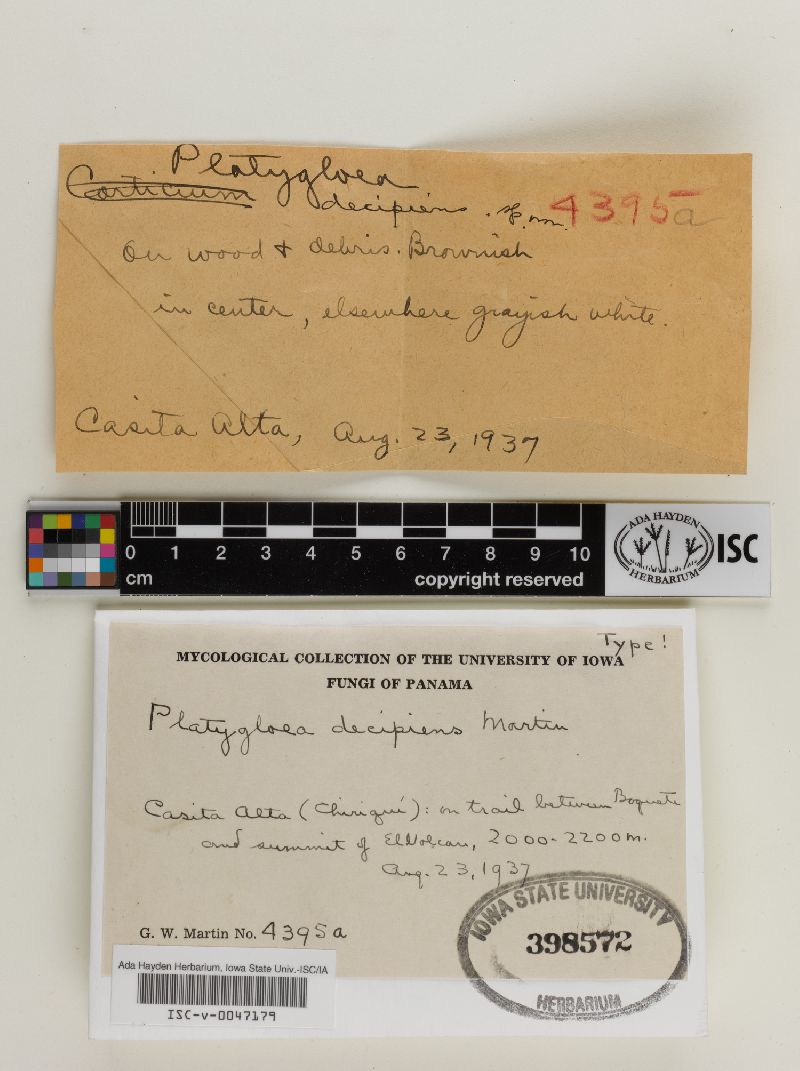 Platygloea
Corticium
decipiens. sp. nov. 4395a
On wood & debris. Brownish
in center, elsewhere grayish white.
Casita Alta, Aug. 23, 1937
0 1 2 3 4 5 6 7 8 9 10
cm copyright reserved
ADA HAYDEN
HERBARIUM
ISC
Type!
MYCOLOGICAL COLLECTION OF THE UNIVERSITY OF IOWA
FUNGI OF PANAMA
Platygloea decipiens Martin
Casita Alta (Chiriquí): on trail between Boquete
and summit of El Volcan, 2000-2200m.
Aug. 23, 1937
G. W. Martin No. 4395a
IOWA STATE UNIVERSITY
398572
HERBARIUM
Ada Hayden Herbarium, Iowa State Univ.-ISC/IA
ISC-v-0047179